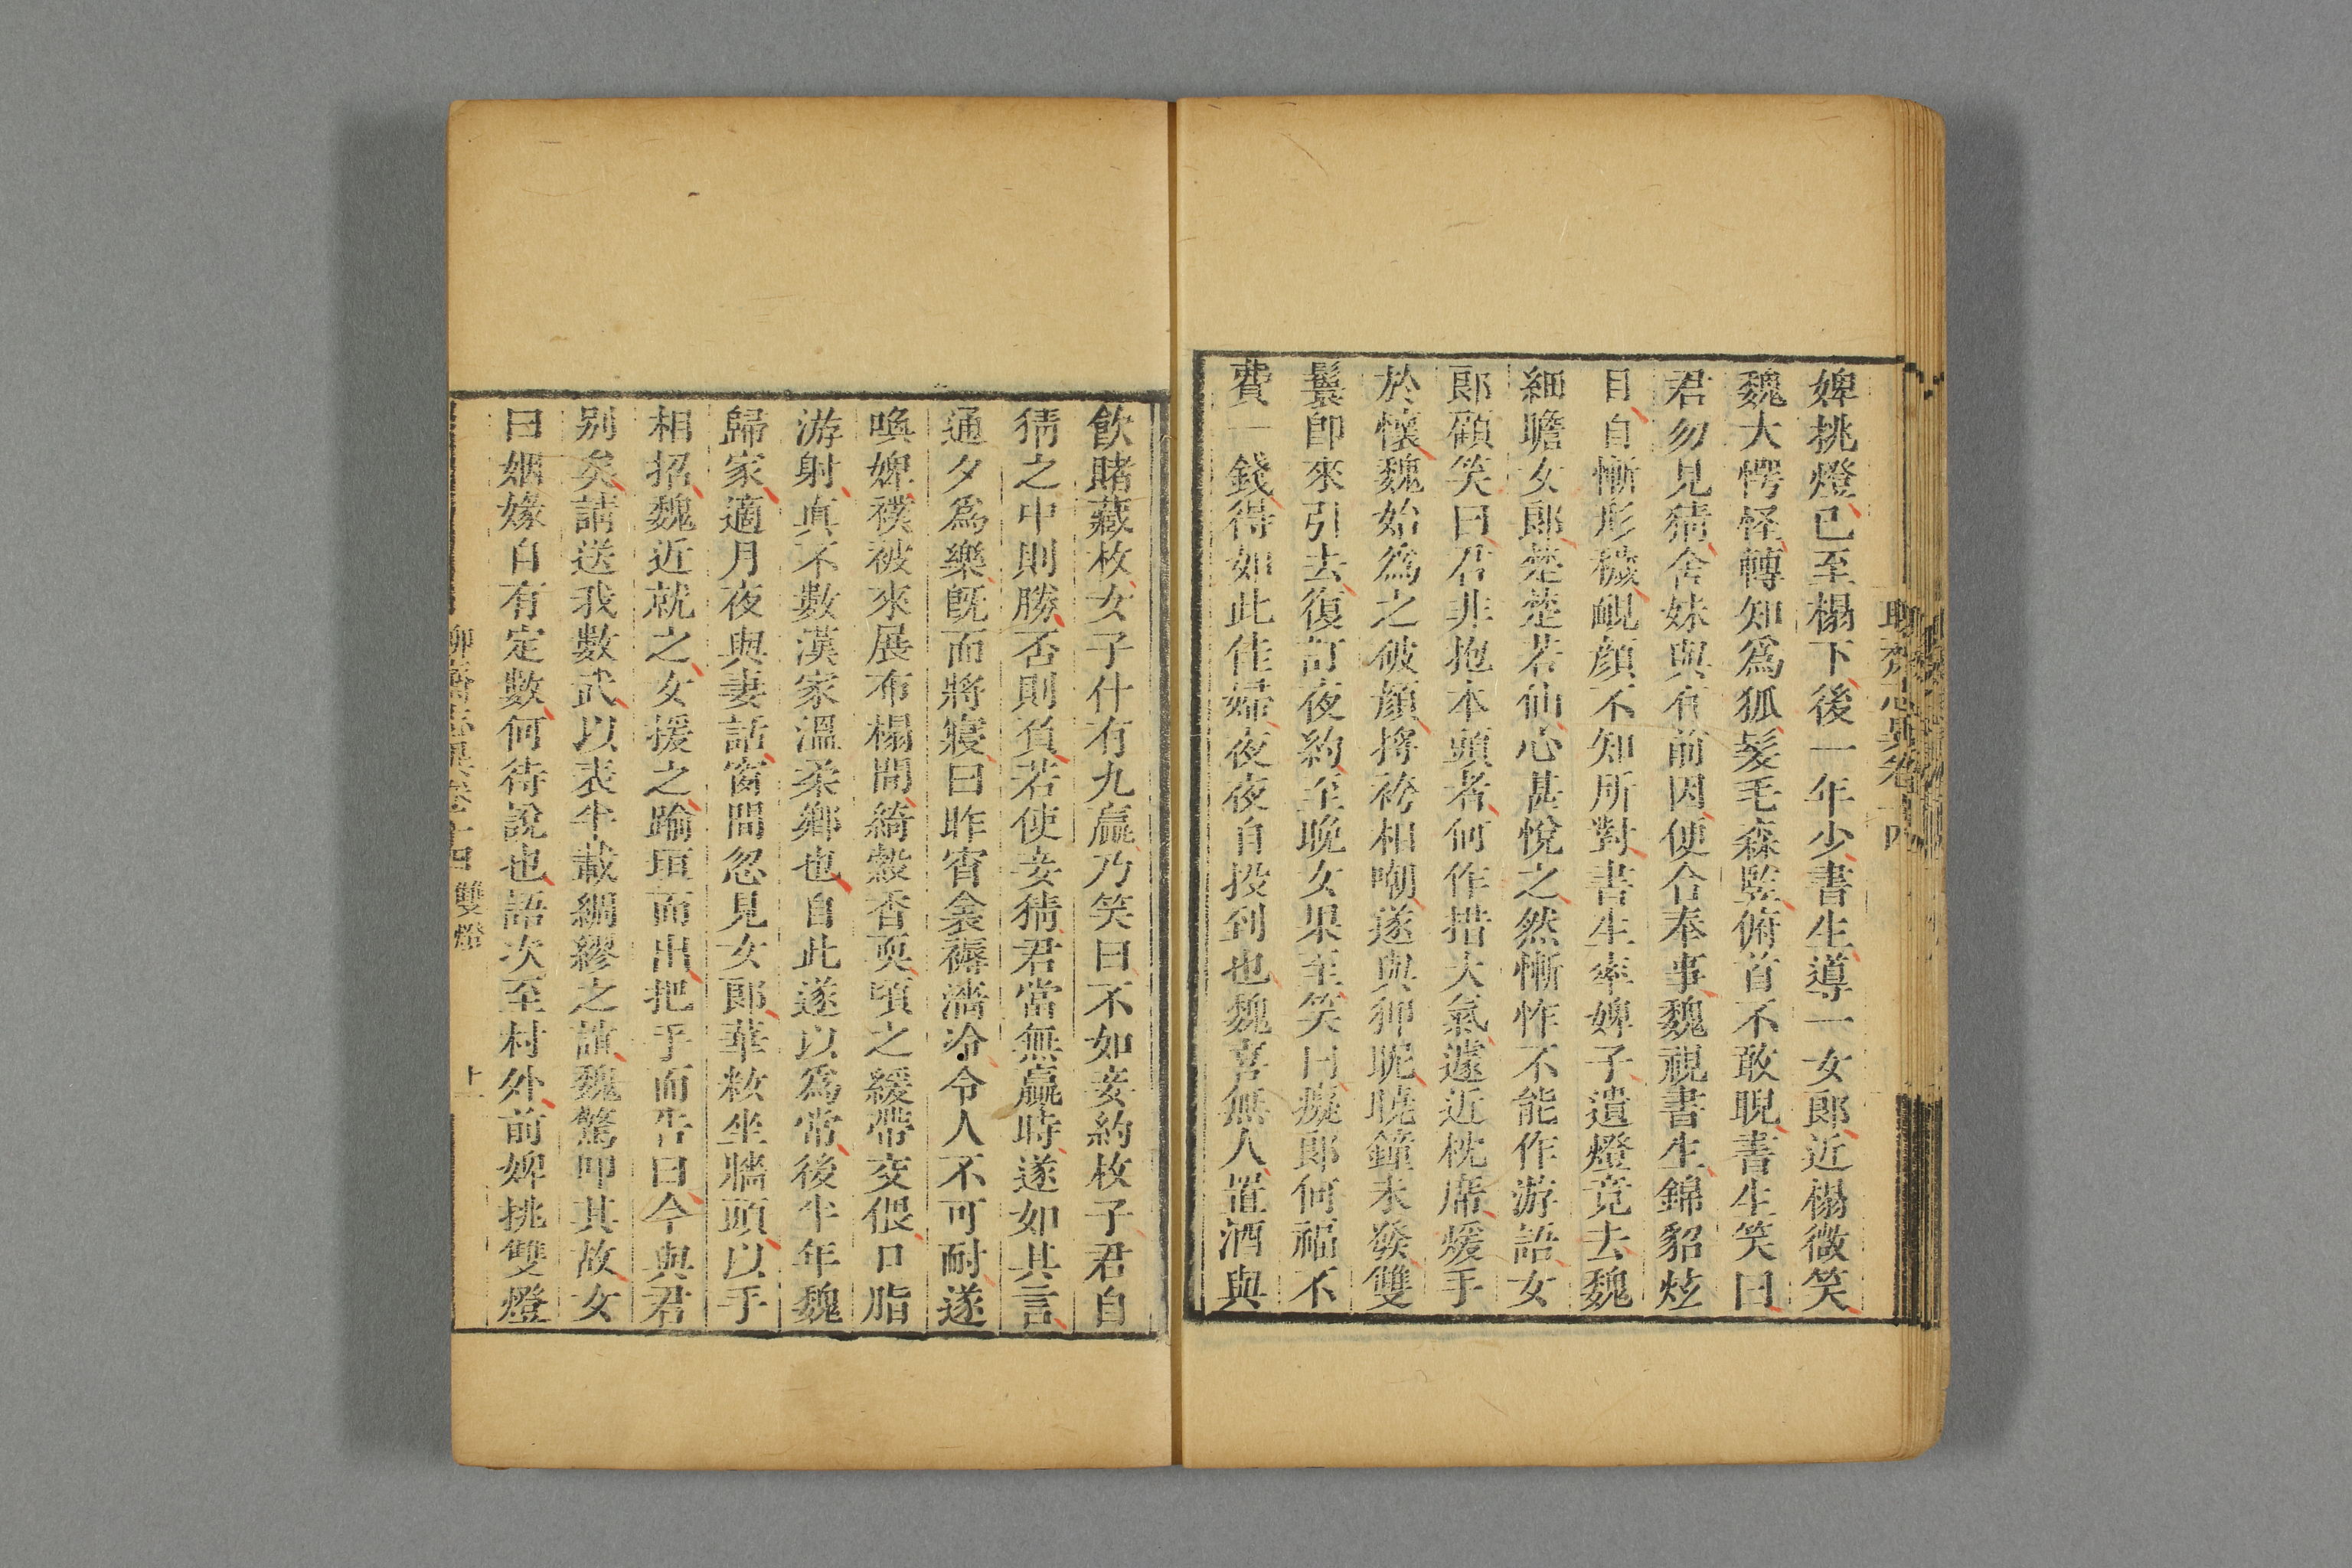 聊齋志異卷十四
婢挑燈已至榻下後一年少書生導一女郎近榻微笑
魏大愕怪轉知爲狐髮毛森竪俯首不敢睨書生笑曰
君勿見猜舍妹與有前因便合奉事魏視書生錦貂炫
目自慚形穢䩄顔不知所對書生率婢子遺燈竟去魏
細瞻女郎楚楚若仙心甚悅之然慚怍不能作游語女
郎顧笑曰君非抱本頭者何作措大氣遽近枕席煖手
於懷魏始爲之破顔捋袴相嘲遂與狎昵曉鐘未發雙
鬟卽來引去復訂夜約至晚女果至笑曰癡郎何福不
費一錢得如此佳婦夜夜自投到也魏喜無人置酒與
飲賭藏枚女子什有九贏乃笑曰不如妾約枚子君自
猜之中則勝否則負若使妾猜君當無贏時遂如其言
通夕爲樂旣而將寢曰昨宵衾褥濇冷令人不可耐遂
喚婢襆被來展布榻間綺縠香耎頃之緩帶交偎口脂
游射真不數漢家溫柔鄉也自此遂以爲常後半年魏
歸家適月夜與妻話窗間忽見女郎華粧坐牆頭以手
相招魏近就之女援之踰垣而出把手而告曰今與君
别矣請送我數武以表半載綢繆之誼魏驚叩其故女
曰姻緣自有定數何待說也語次至村外前婢挑雙燈
聊齋志異卷十四 雙燈